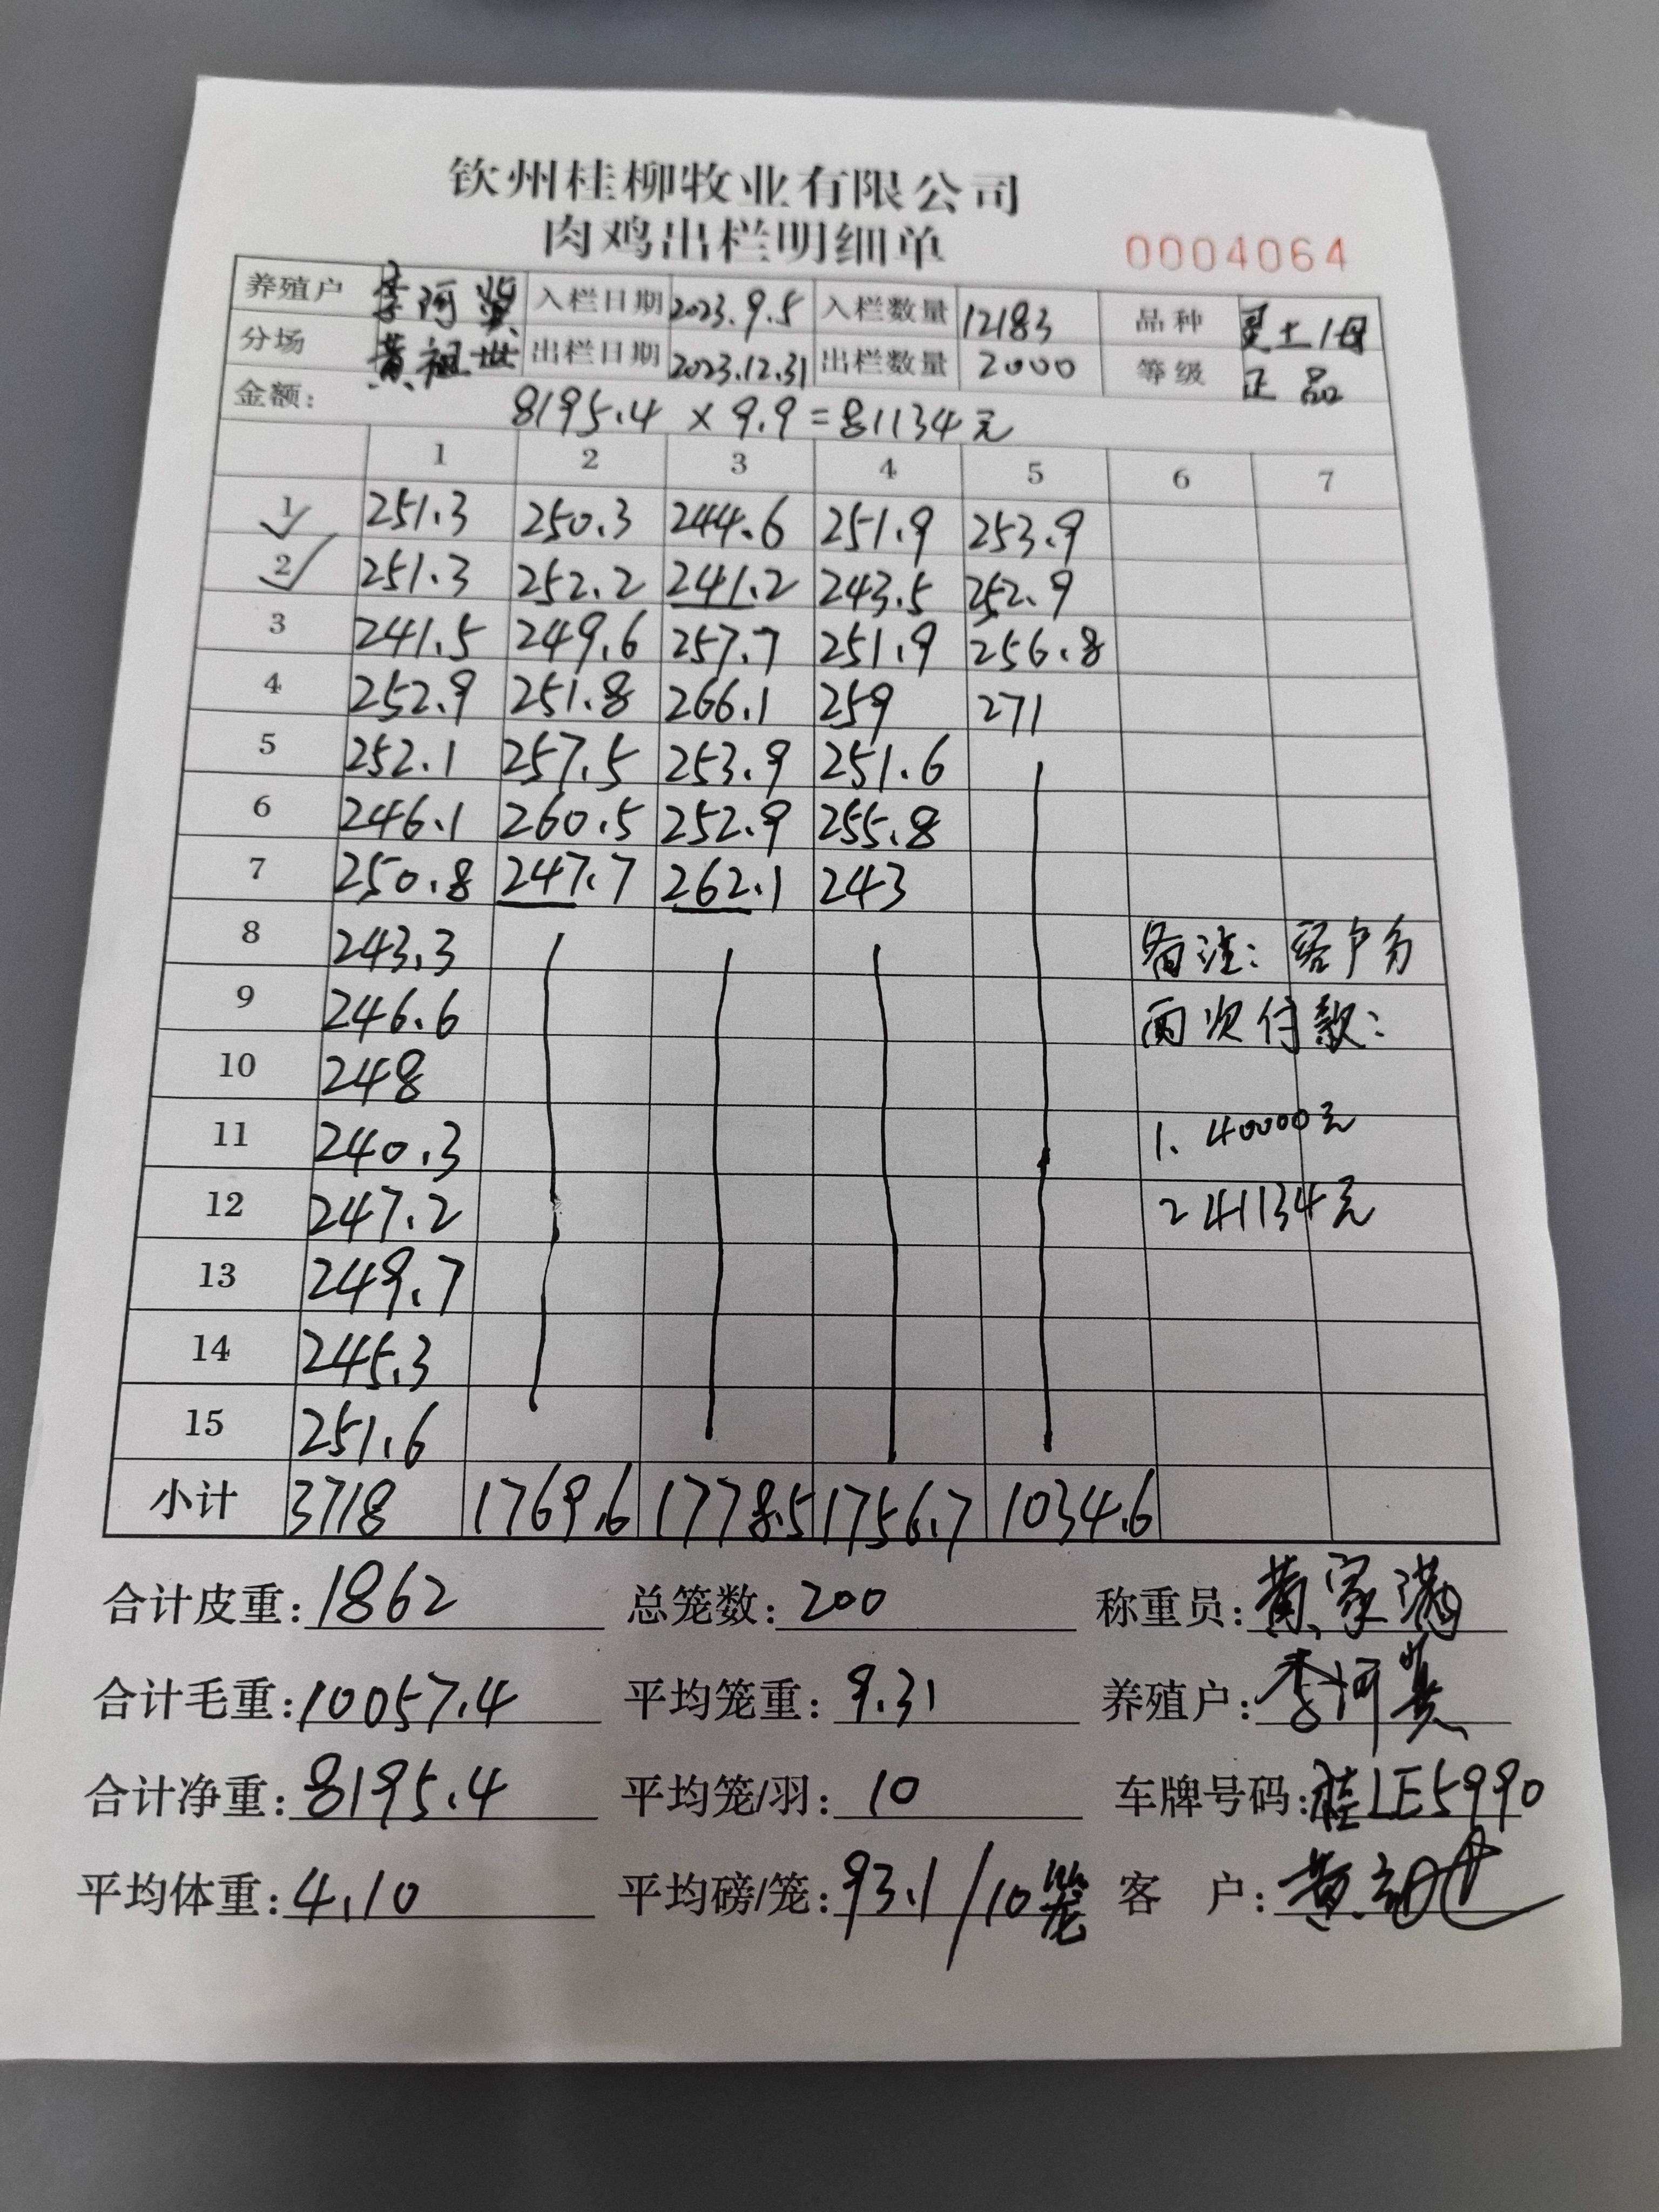 钦州桂柳牧业有限公司
肉鸡出栏明细单
0004064
养殖户 李阿 入栏日期 2023.9.5 入栏数量 12183 品种 土1母
分场 黄祖世 出栏日期 2023.12.31 出栏数量 2000 等级 正品
金额: 8195.4 × 9.9 = 81134元
1 2 3 4 5 6 7
1 251.3 250.3 244.6 251.9 253.9
2 251.3 252.2 241.2 243.5 252.9
3 241.5 249.6 257.7 251.9 256.8
4 252.9 251.8 266.1 259 271
5 252.1 257.5 253.9 251.6
6 246.1 260.5 252.9 255.8
7 250.8 247.7 262.1 243
8 243.3 备注: 客户分
9 246.6 两次付款:
10 248
11 240.3 1. 40000元
12 247.2 2 41134元
13 249.7
14 245.3
15 251.6
小计 3718 1769.6 1778.5 1756.7 1034.6
合计皮重: 1862 总笼数: 200 称重员: 黄家满
合计毛重: 10057.4 平均笼重: 9.31 养殖户: 李阿
合计净重: 8195.4 平均笼/羽: 10 车牌号码: 桂LE5990
平均体重: 4.10 平均磅/笼: 93.1/10笼 客 户: 黄